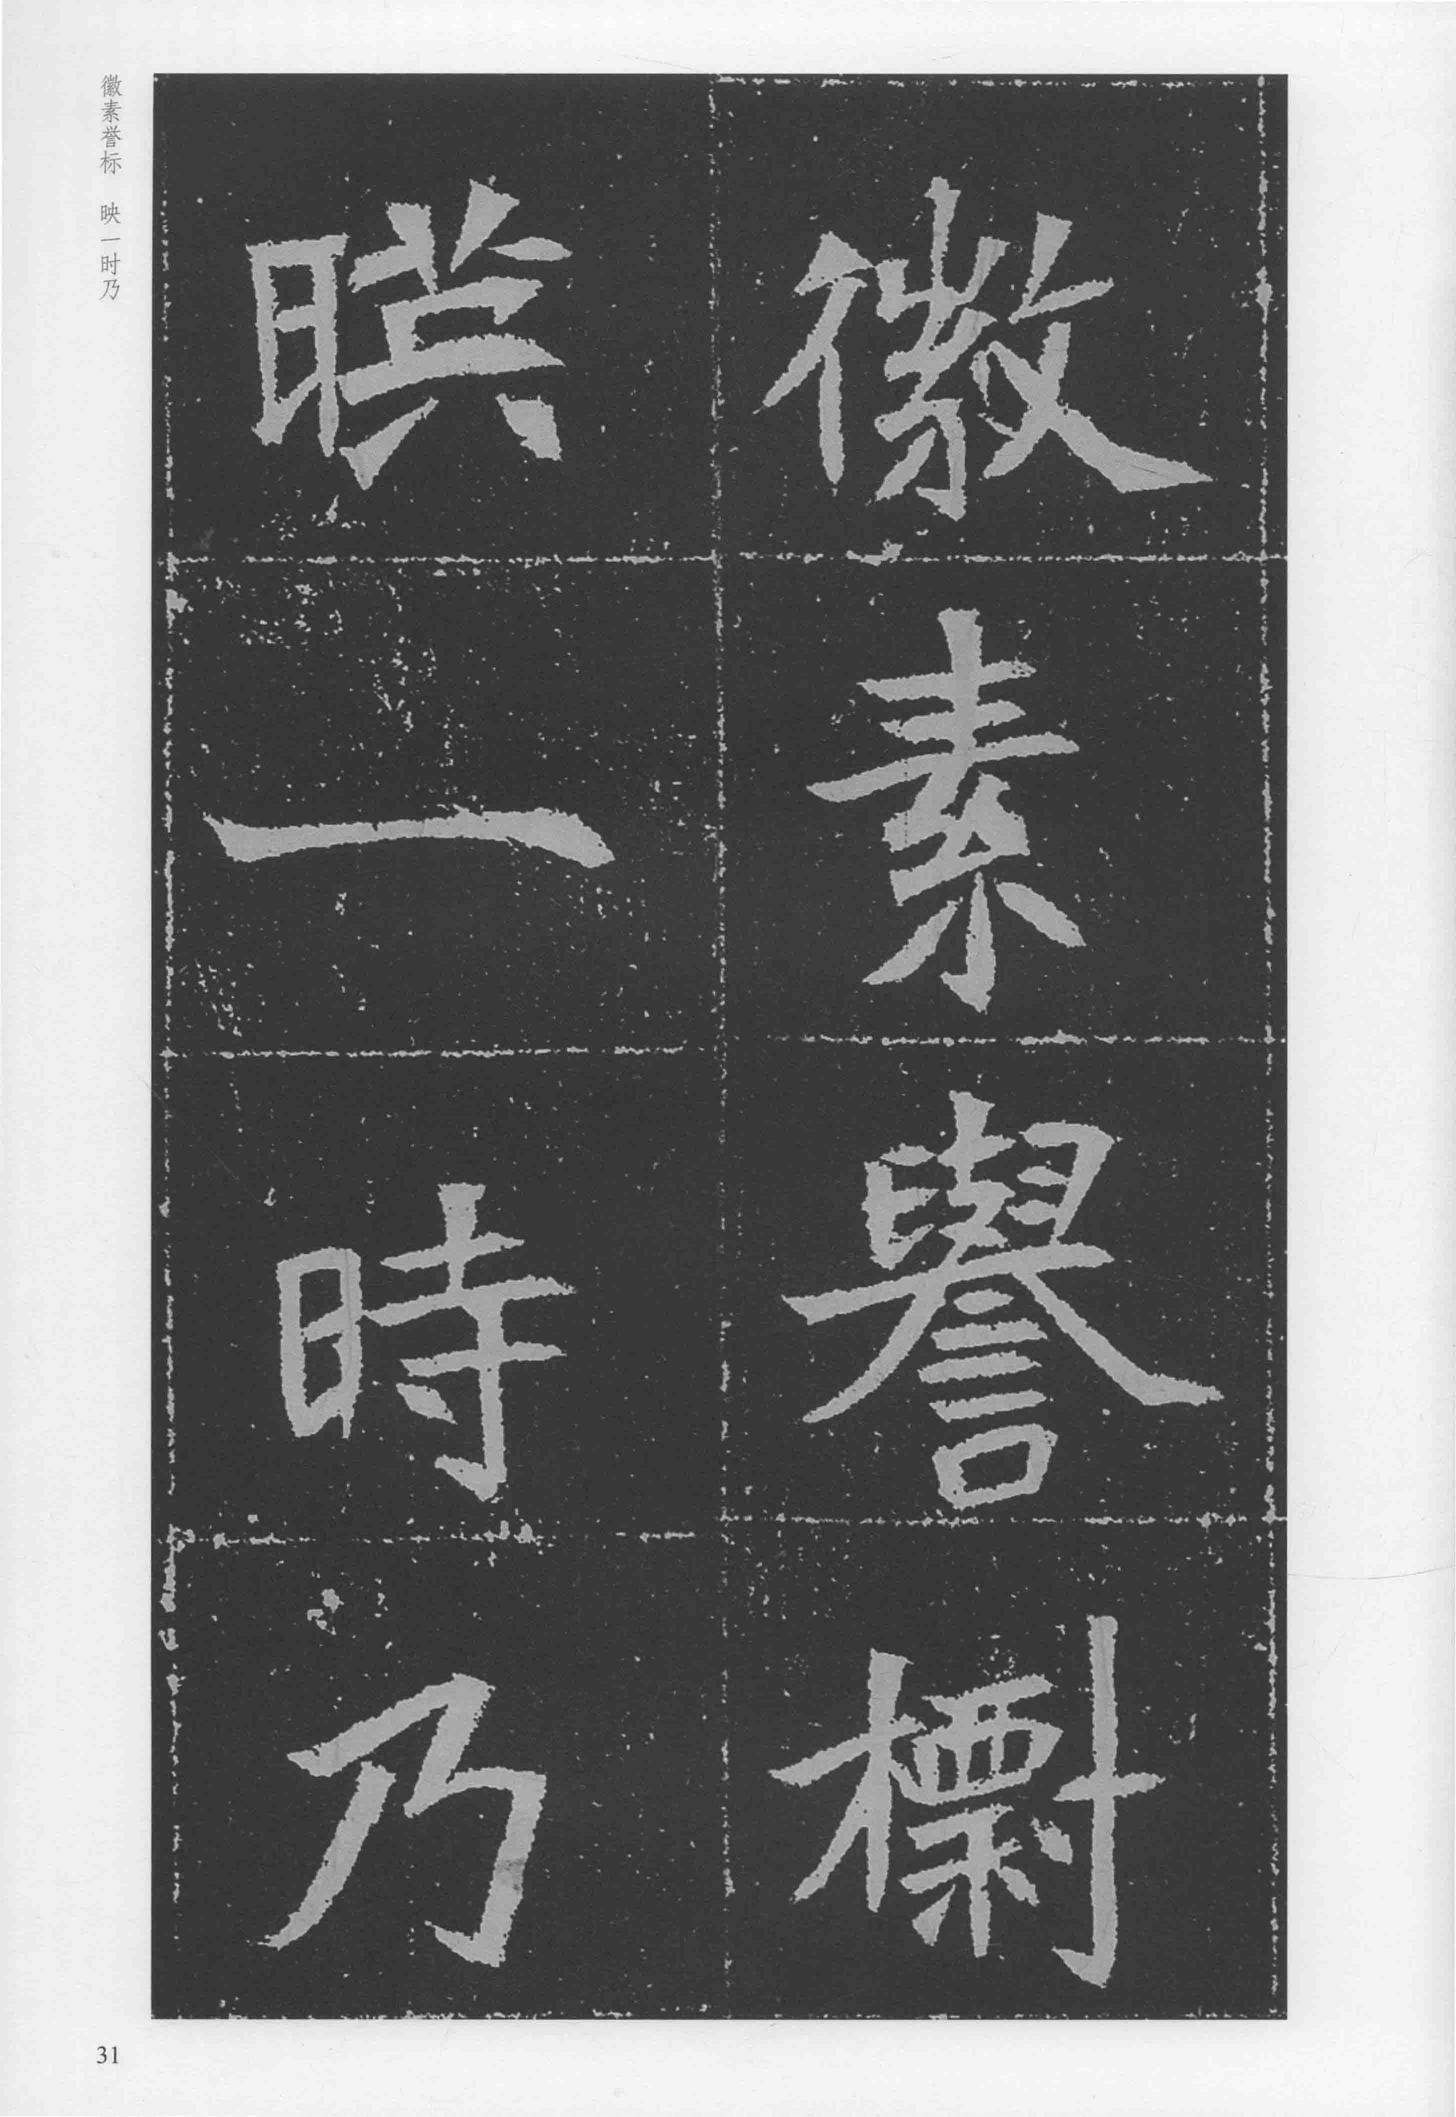 徽素譽𣚃
暎一時乃
徽素誉标 映一时乃
31